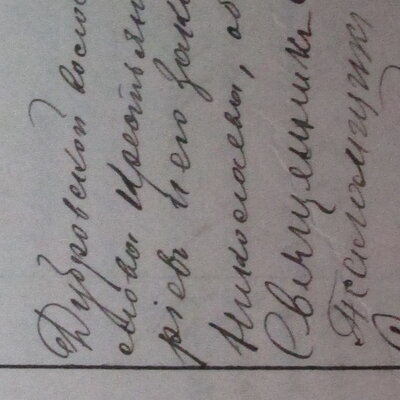 Дубровской волос
това крестьян
ріевъ и его зако
Николаева, об
Священникъ
Псаломщикъ